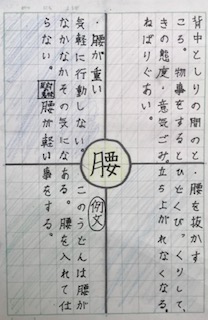 背中としりの間のと
ころ。物事をすると
きの態度・意気ごみ
ねばりぐあい。
・腰を抜かす
ひどくびっくりして、
立ち上がれなくなる。
腰
・腰が重い
気軽に行動しない。
なかなかその気にな
らない。腰が軽い
例文
このうどんは腰が
ある。腰を入れて仕
事をする。